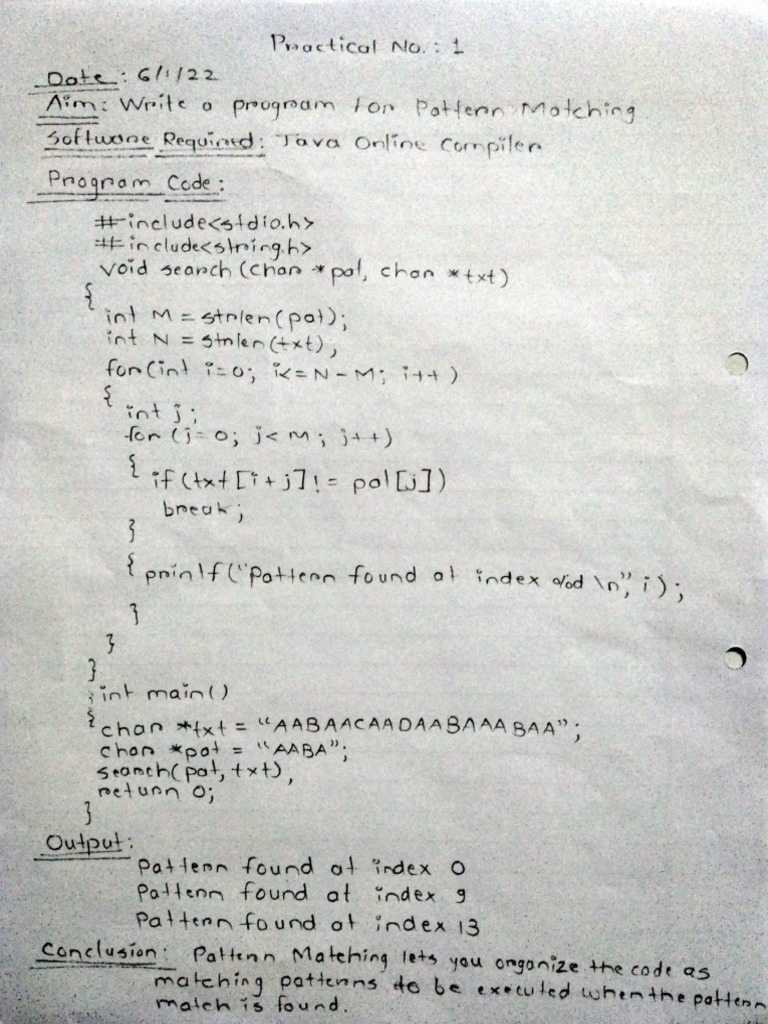 Practical No. : 1
Date : 6/1/22
Aim : Write a program for Pattern Matching
Software Required : Java Online Compiler
Program Code :
#include<stdio.h>
#include<string.h>
void search (char *pat, char *txt)
{
int M = strlen(pat);
int N = strlen(txt);
for(int i=0; i<=N-M; i++)
{
int j;
for (j=0; j<M; j++)
{
if (txt[i+j]!= pat[j])
break;
}
{ printf("Pattern found at index %d \n", i);
}
}
}
int main()
{
char *txt = "AABAACAADAABAAABAA";
char *pat = "AABA";
search(pat, txt);
return 0;
}
Output :
Pattern found at index 0
Pattern found at index 9
Pattern found at index 13
Conclusion : Pattern Matching lets you organize the code as
matching patterns to be executed when the pattern
match is found.